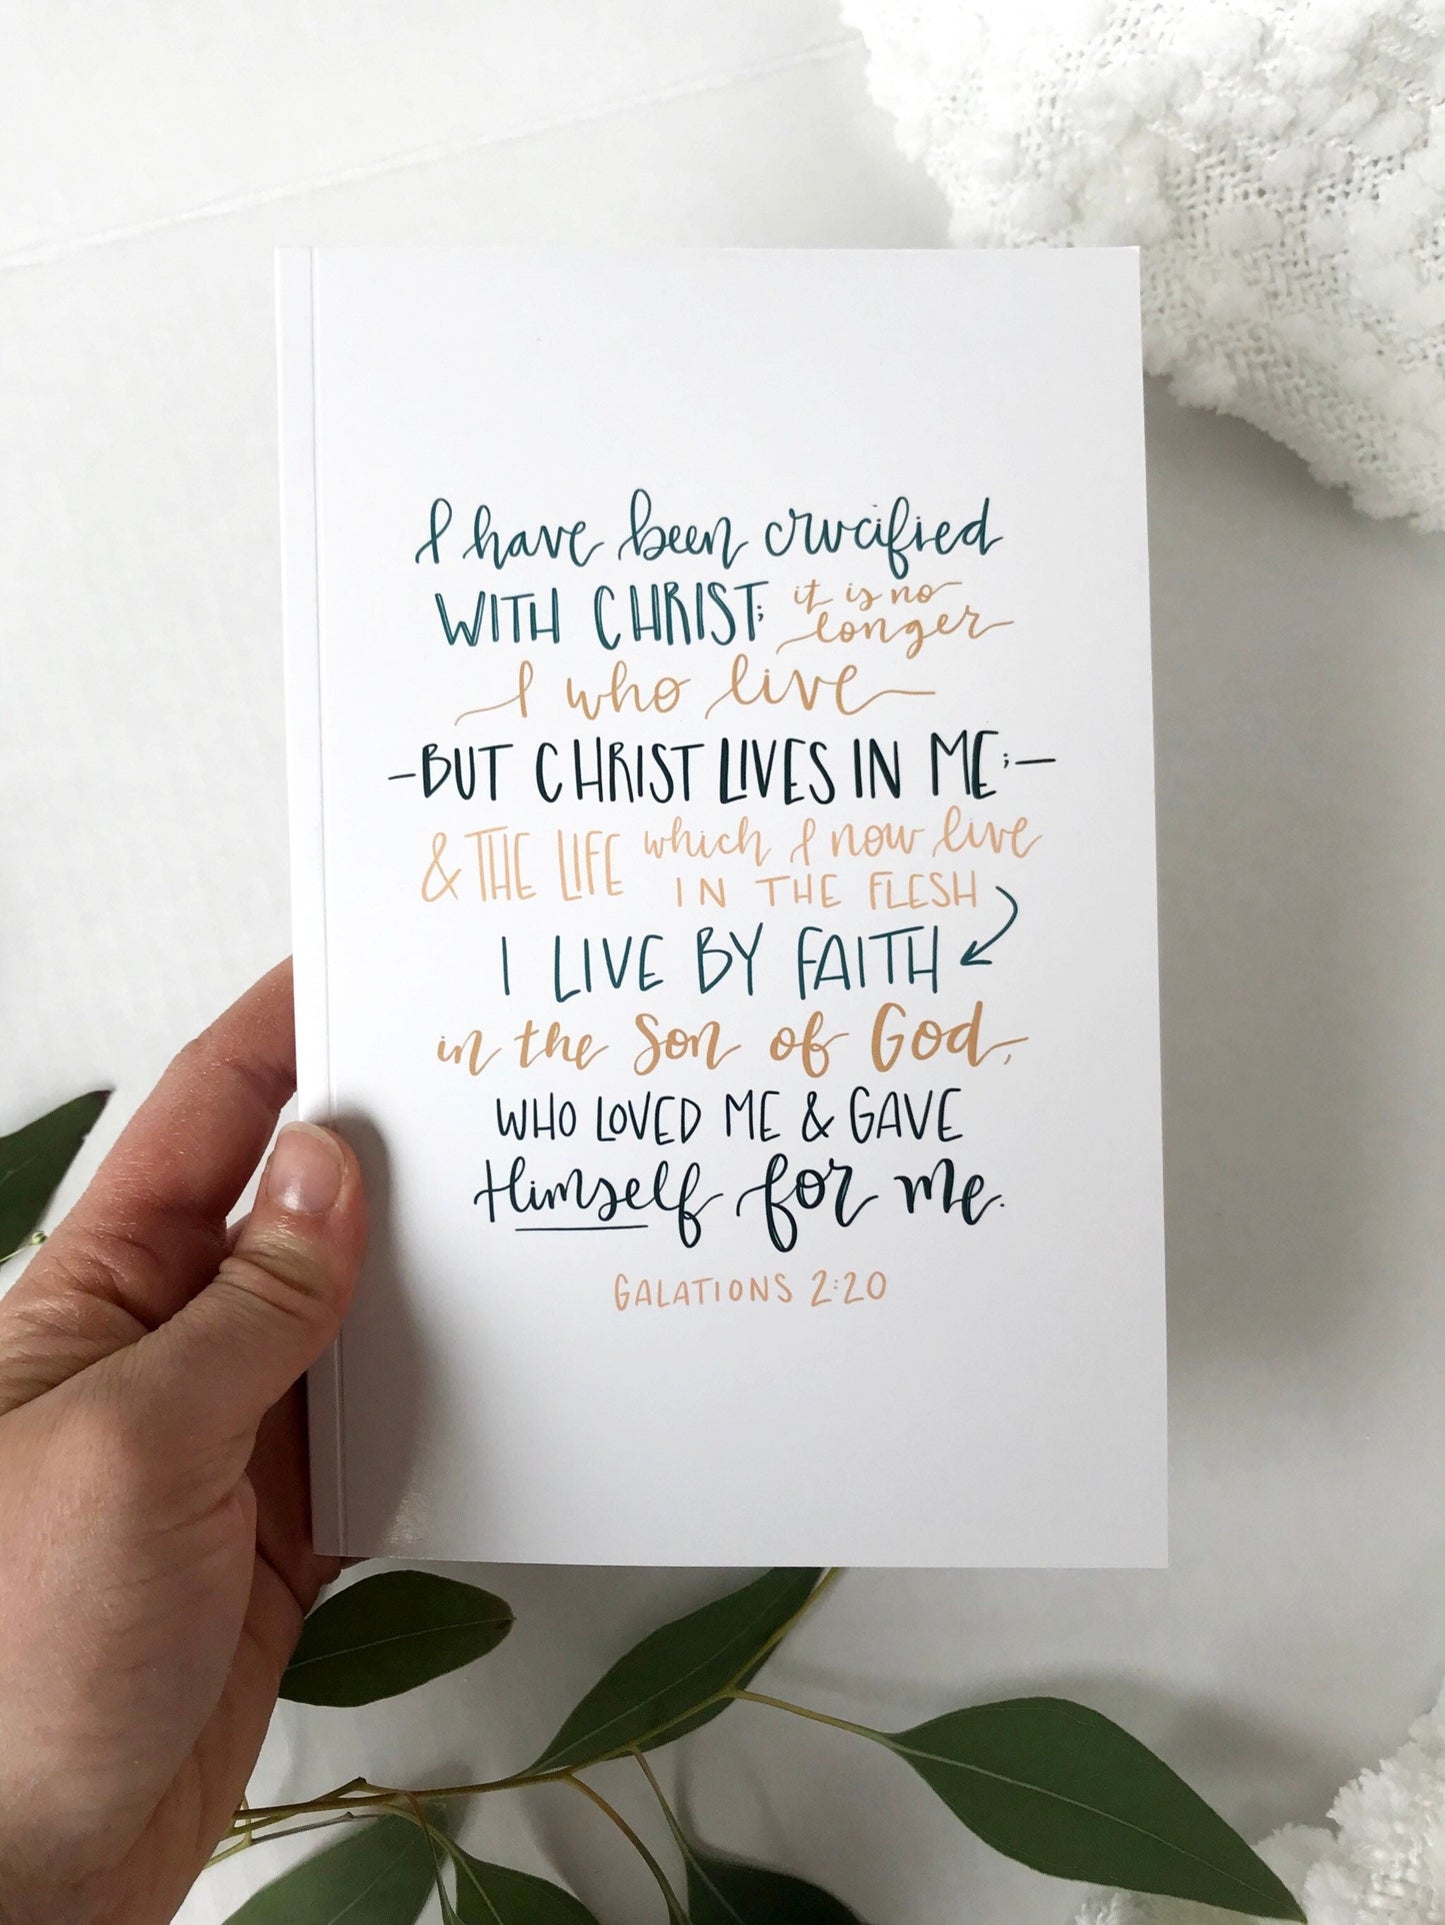 I have been crucified
WITH CHRIST; it is no longer
I who live
-BUT CHRIST LIVES IN ME;-
& THE LIFE which I now live
IN THE FLESH
I LIVE BY FAITH
in the Son of God,
WHO LOVED ME & GAVE
Himself for me.
GALATIONS 2:20